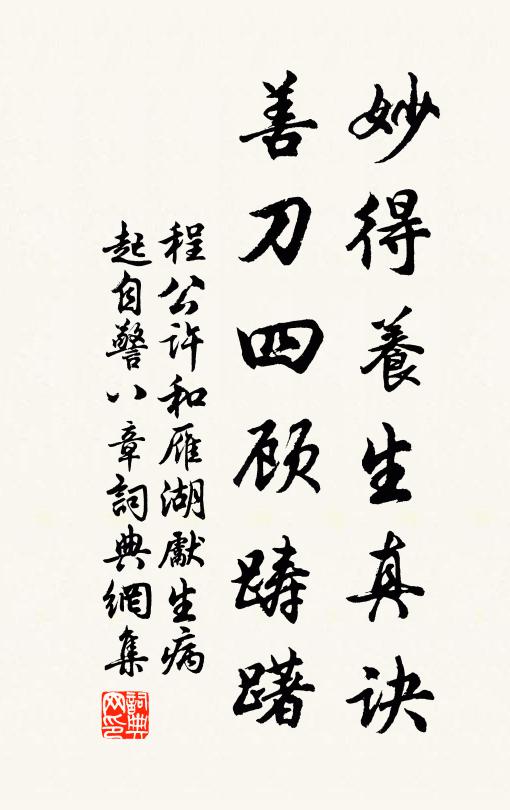 妙得養生真诀
善刀四顾踌躇
程公许和雁湖獻生病
起自警八章詞典網集
詞典网印